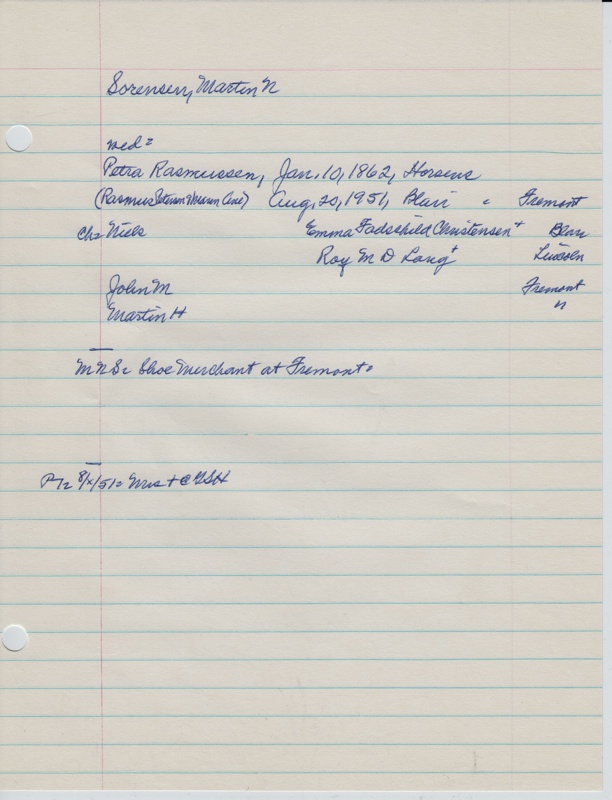 Sorensen, Martin N
wed=
Petra Rasmussen, Jan. 10, 1862, Horsens
(Rasmus Peterson Ane) Aug. 20, 1951, Blair " Fremont
Ch= Niels Emma Fadschild Christensen+ Blair
Roy M D Long+ Lincoln
John M Fremont
Martin H "
M N S= Shoe Merchant at Fremont=
P12 8/x/51= Mrs + C GSH